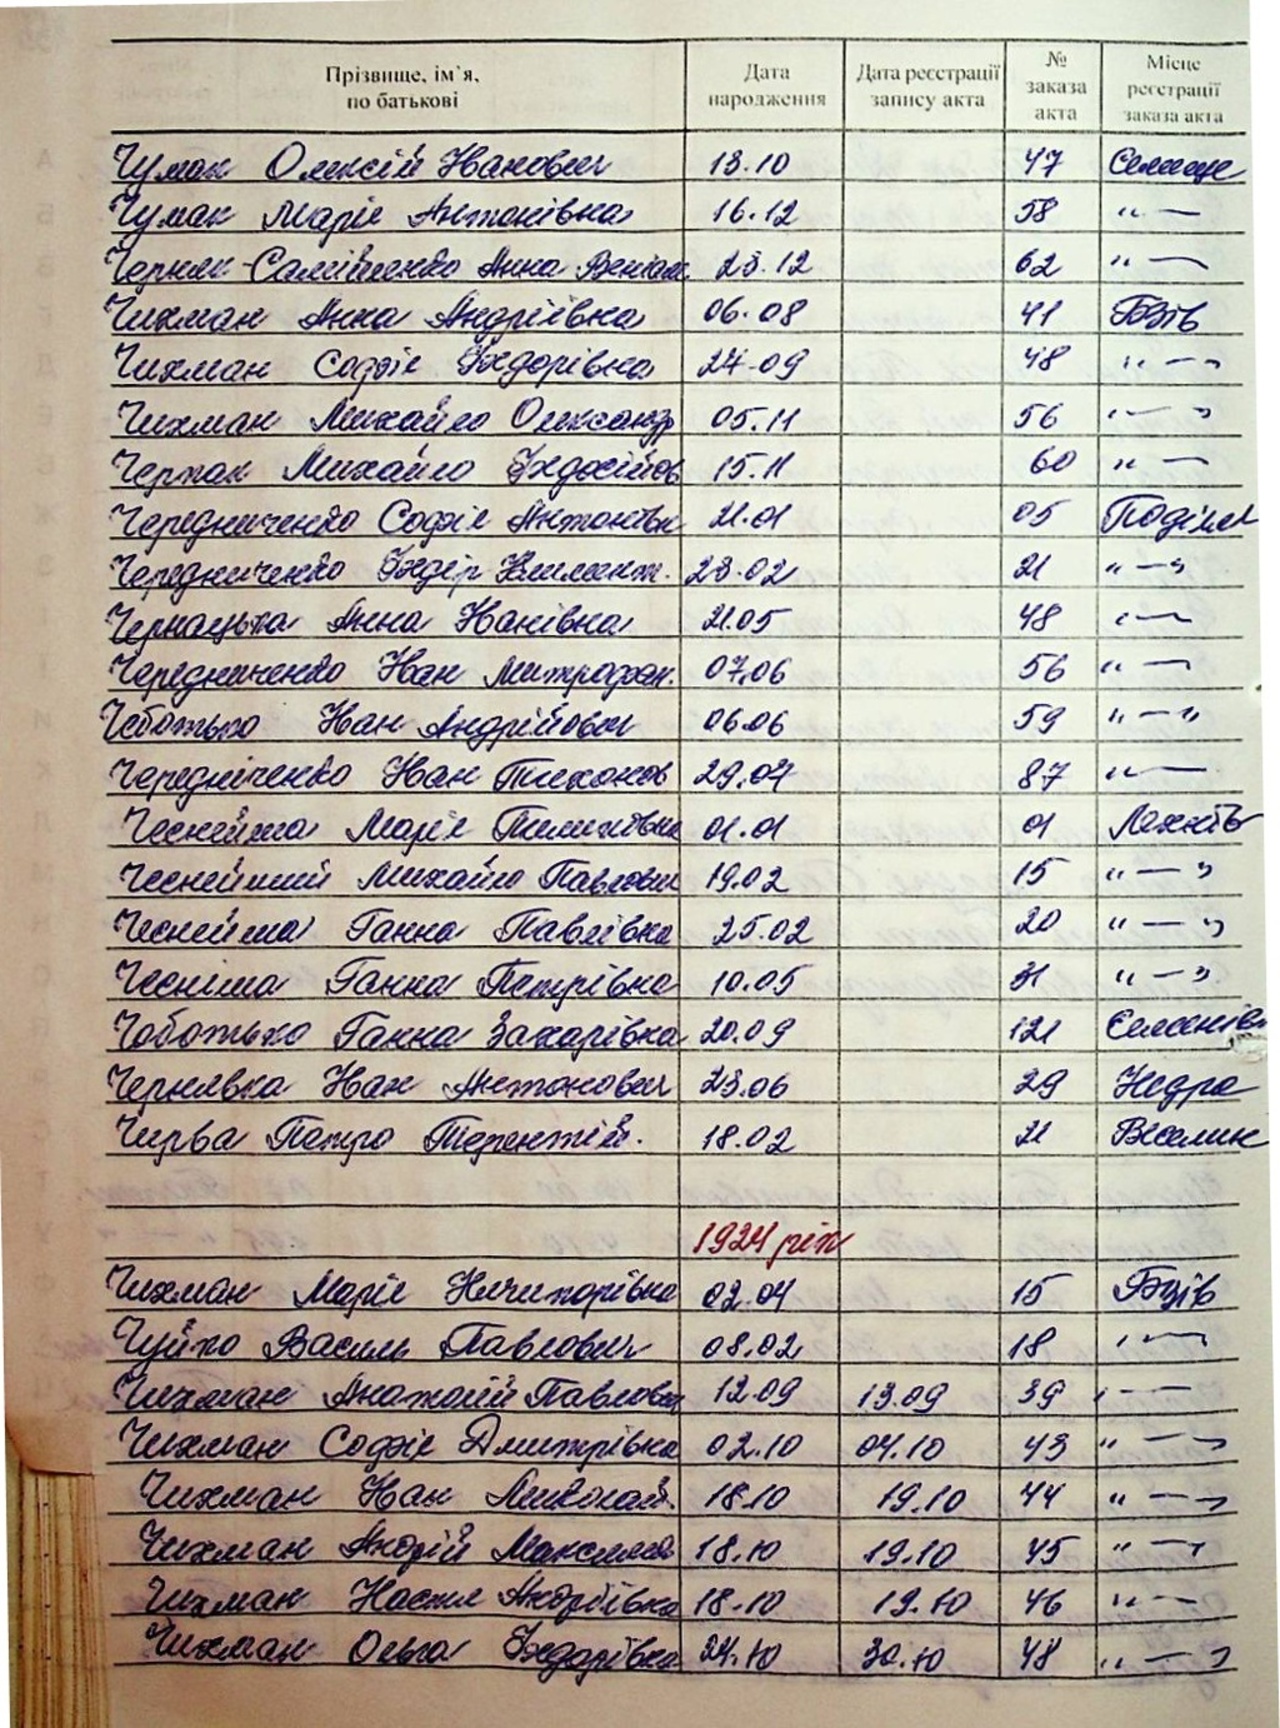 Прізвище, ім`я, по батькові Дата народження Дата реєстрації запису акта № заказа акта Місце реєстрації заказа акта
Чумак Олексій Іванович 13.10 47 Селище
Чумак Марія Антонівна 16.12 58 "—
Черняк-Самійленко Анна Веніам 23.12 62 "—
Чихман Анна Андріївна 06.08 41 Бзів
Чихман Софія Федорівна 24.09 48 "—"
Чихман Михайло Олександр 05.11 56 "—"
Черпак Михайло Федосійов 15.11 60 "—
Чередниченко Софія Антонівн 21.01 05 Поділля
Чередниченко Федір Климент. 23.02 21 "—"
Чернацька Анна Іванівна 21.05 48 "—
Чередниченко Іван Митрофан. 07.06 56 "—
Чоботько Іван Андрійович 06.06 59 "—"
Чередніченко Іван Тихонов 29.07 87 "—
Чеснейша Марія Пилипівна 01.01 01 Лехнів
Чеснейший Михайло Павлович 19.02 15 "—"
Чеснейша Ганна Павлівна 25.02 20 "—"
Чесніша Ганна Петрівна 10.05 31 "—"
Чоботько Ганна Захарівна 20.09 121 Селенів
Чернявка Іван Антонович 23.06 29 Недра
Чирва Петро Терентій. 18.02 21 Веселин
1924 рік
Чихман Марія Ничипорівна 02.04 15 Бзів
Чуйко Василь Павлович 08.02 18 "—
Чихман Анатолій Павлович 12.09 13.09 39 "—
Чихман Софія Дмитрівна 02.10 04.10 43 "—"
Чихман Іван Миколай. 18.10 19.10 44 "—"
Чихман Андрій Максимов 18.10 19.10 45 "—"
Чихман Настя Андріївна 18.10 19.10 46 "—
Чихман Ольга Федорівна 24.10 30.10 48 "—"